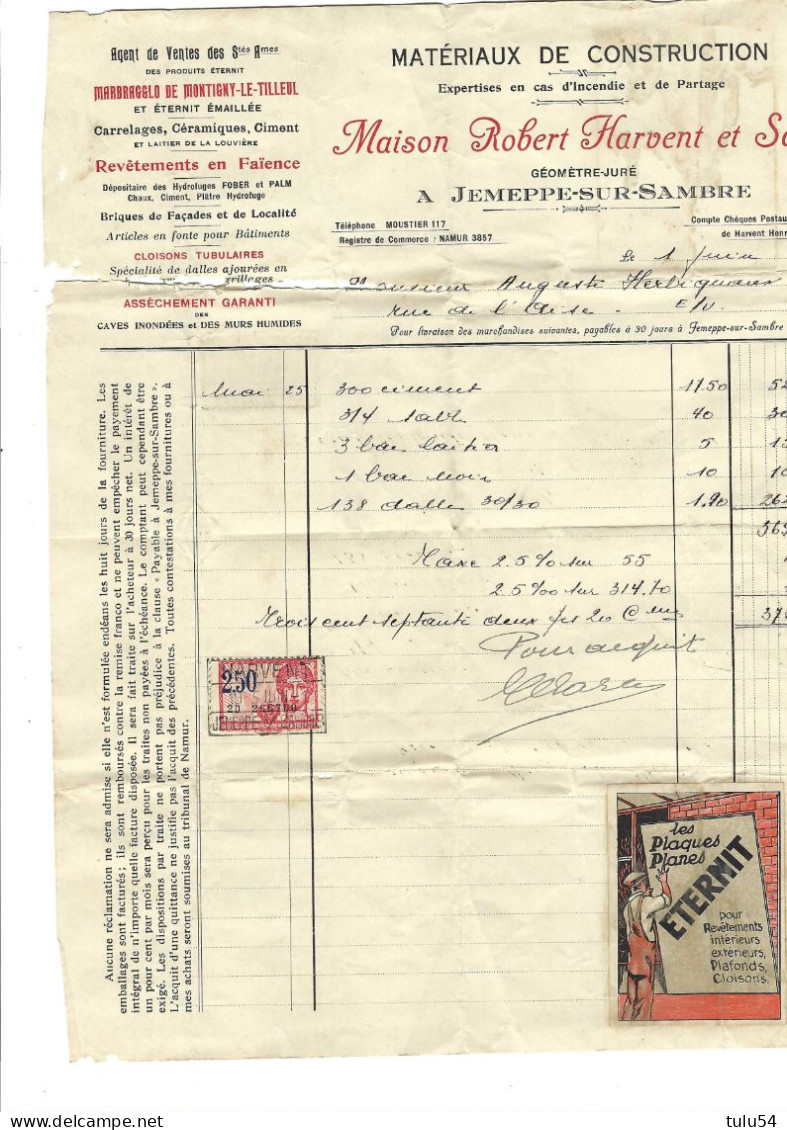 Agent de Ventes des Stés Ames
DES PRODUITS ÉTERNIT
MARBRAGGLO DE MONTIGNY-LE-TILLEUL
ET ÉTERNIT ÉMAILLÉE
Carrelages, Céramiques, Ciment
ET LAITIER DE LA LOUVIÈRE
Revêtements en Faïence
Dépositaire des Hydrofuges FOBER et PALM
Chaux, Ciment, Plâtre Hydrofuge
Briques de Façades et de Localité
Articles en fonte pour Bâtiments
CLOISONS TUBULAIRES
Spécialité de dalles ajourées en
grillages
ASSÈCHEMENT GARANTI
DES
CAVES INONDÉES et DES MURS HUMIDES
MATÉRIAUX DE CONSTRUCTION
Expertises en cas d'Incendie et de Partage
Maison Robert Harvent et S
GÉOMÈTRE-JURÉ
A JEMEPPE-SUR-SAMBRE
Téléphone MOUSTIER 117
Registre de Commerce : NAMUR 3857
Compte Chèques Postau
de Harvent Honr
Le 1 Juin
Monsieur Auguste Herbiguaux
rue de l'Oise. E/V.
Pour livraison des marchandises suivantes, payables à 30 jours à Jemeppe-sur-Sambre
Mai 25 300 ciment 17.50 52
3/4 sabl 40 30
3 bac 5 1
1 bac noir 10 10
138 dalles 30/30 1.90 262
369
Taxe 2.5% sur 55
2.5‰ sur 314.70
Trois cent septante deux frs 20 Cmes 372
Pour acquit
HARVENT
2.50
JUIN
JEMEPPE S/ SAMBRE
Aucune réclamation ne sera admise si elle n'est formulée endéans les huit jours de la fourniture. Les
emballages sont facturés; ils sont remboursés contre la remise franco et ne peuvent empêcher le payement
intégral de n'importe quelle facture disposée. Il sera fait traite sur l'acheteur à 30 jours net. Un intérêt de
un pour cent par mois sera perçu pour les traites non payées à l'échéance. Le comptant peut cependant être
exigé. Les dispositions par traite ne portent pas préjudice à la clause « Payable à Jemeppe-sur-Sambre ».
L'acquit d'une quittance ne justifie pas l'acquit des précédentes. Toutes contestations à mes fournitures ou à
mes achats seront soumises au tribunal de Namur.
les
Plaques
Planes
ETERNIT
pour
Revêtements
intérieurs
extérieurs,
Plafonds,
Cloisons.
tulu54